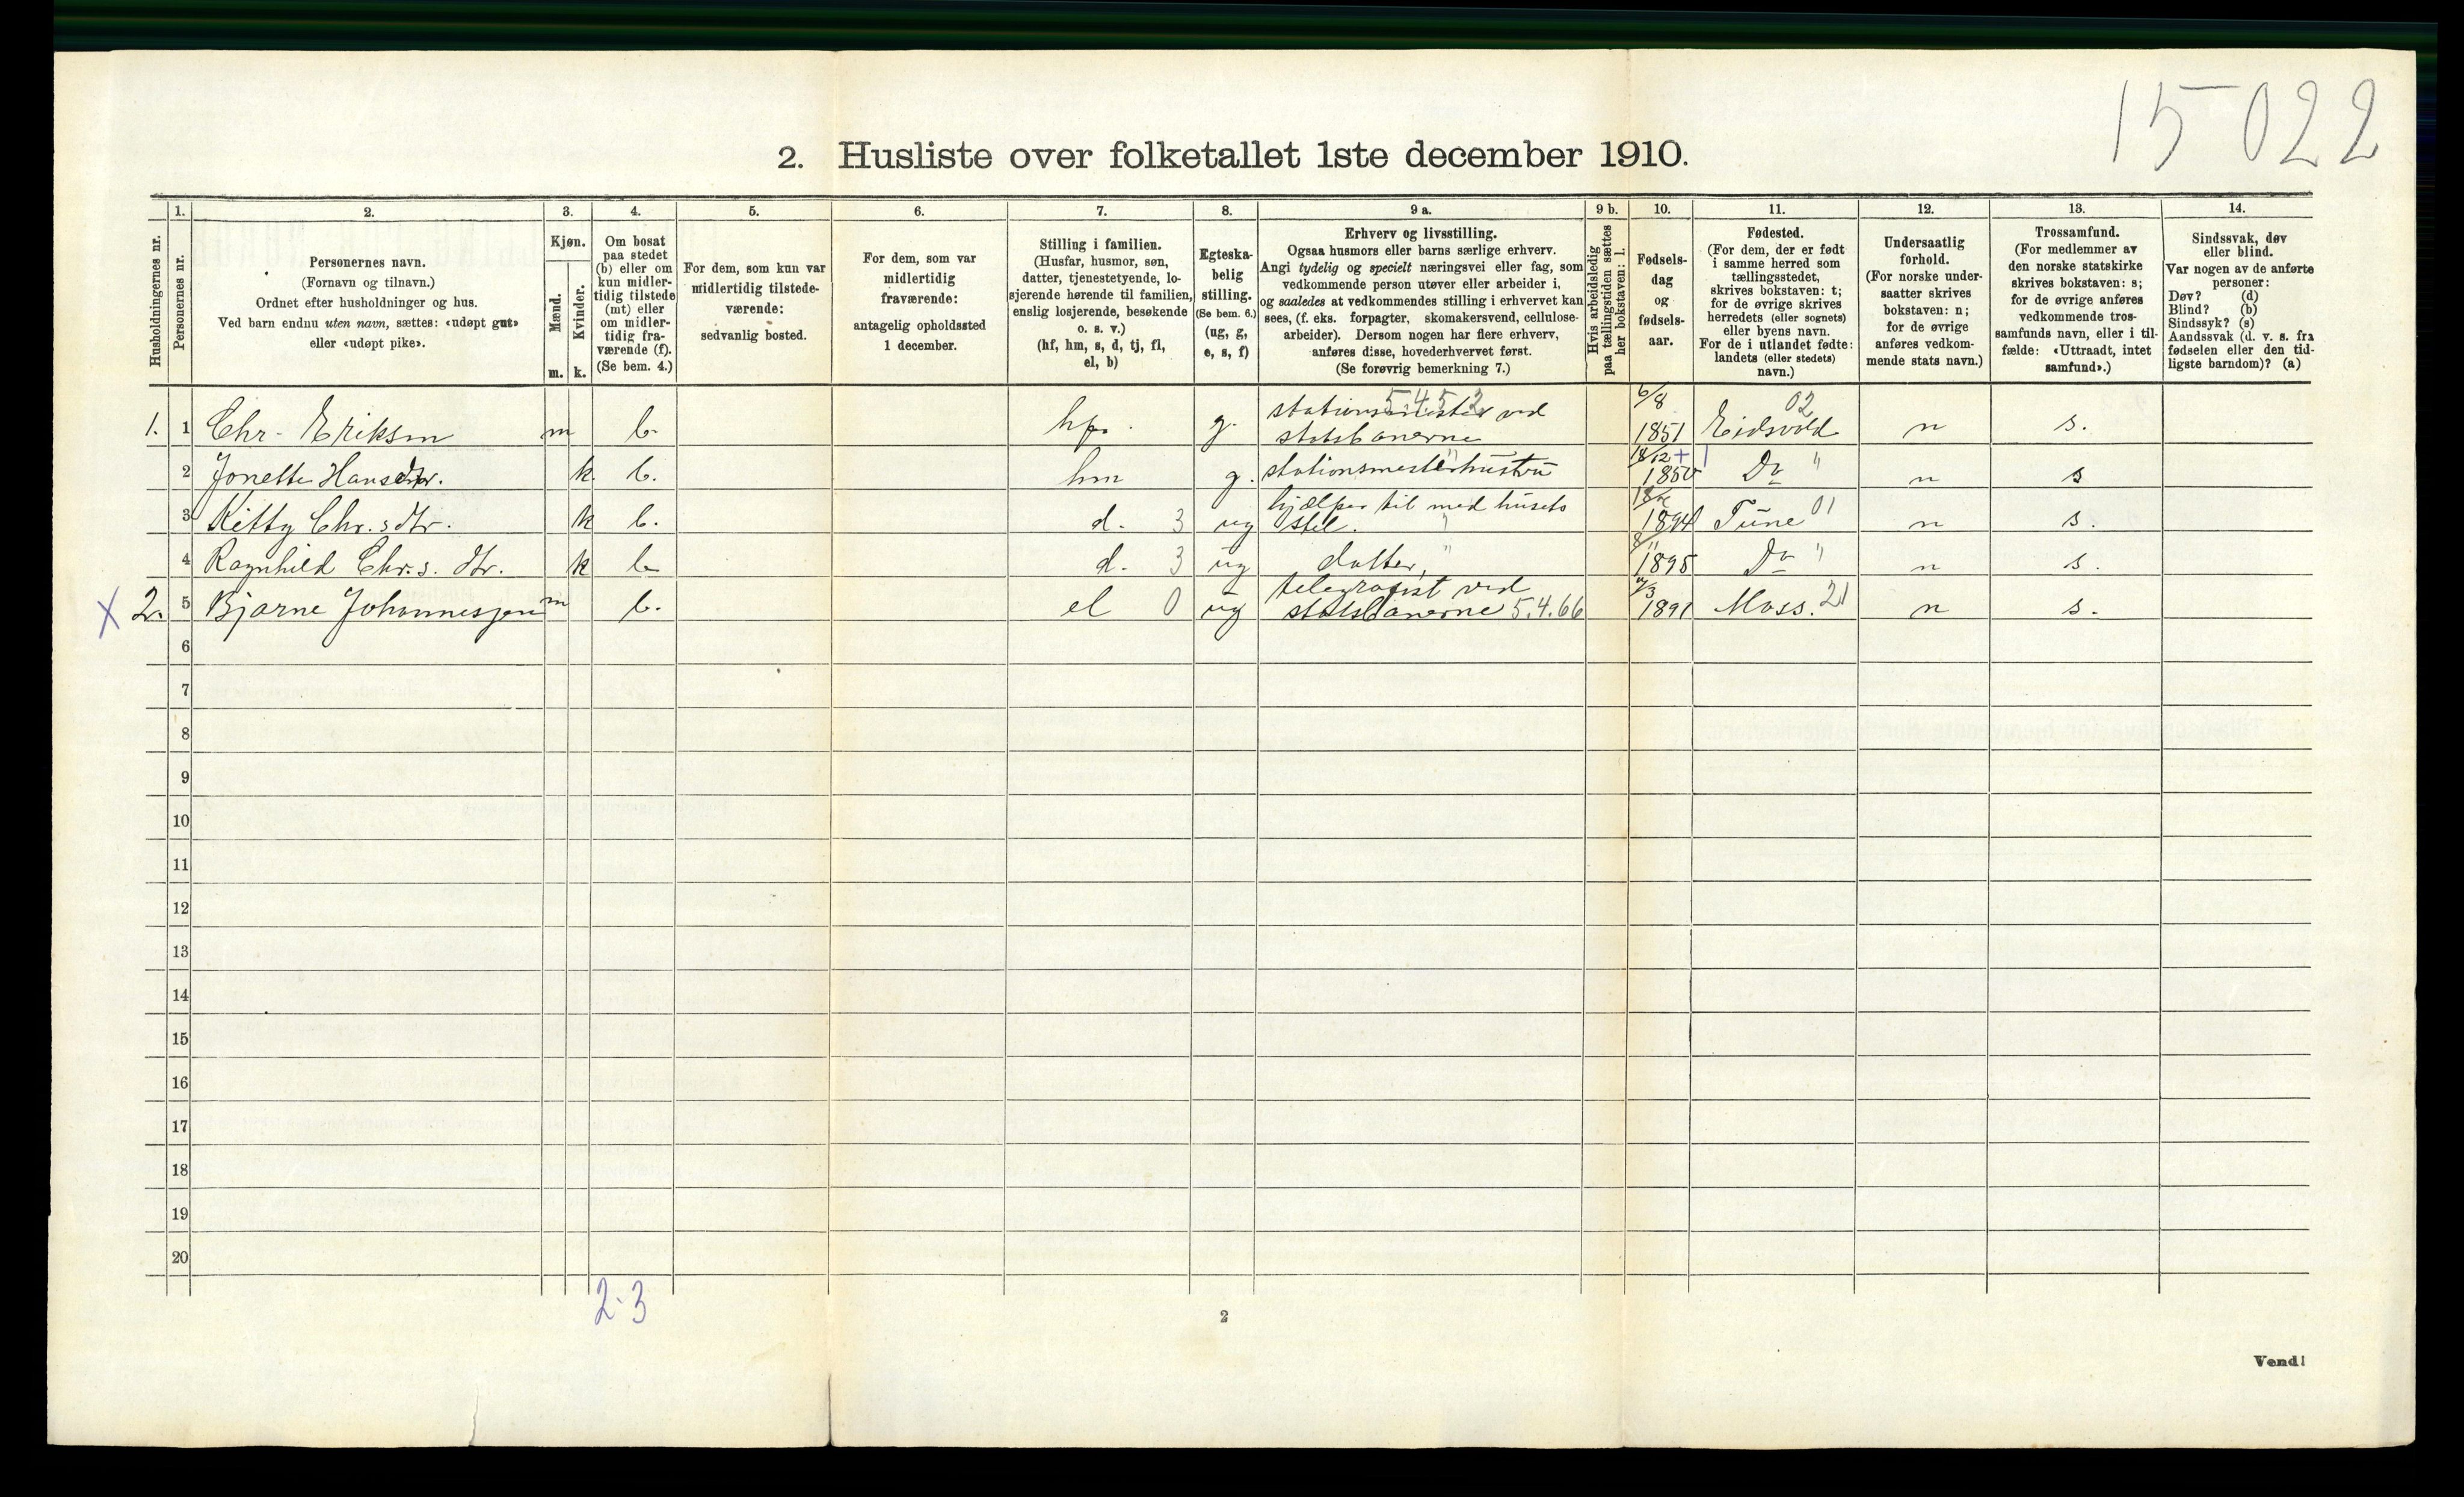 15022
2. Husliste over folketallet 1ste december 1910.
Husholdningernes nr.
1.
Personernes nr.
2.
Personernes navn.
(Fornavn og tilnavn.)
Ordnet efter husholdninger og hus.
Ved barn endnu uten navn, sættes: «udøpt gut»
eller «udøpt pike».
3.
Kjøn.
Mænd.
m.
Kvinder.
k.
4.
Om bosat
paa stedet
(b) eller om
kun midler-
tidig tilstede
(mt) eller
om midler-
tidig fra-
værende (f).
(Se bem. 4.)
5.
For dem, som kun var
midlertidig tilstede-
værende:
sedvanlig bosted.
6.
For dem, som var
midlertidig
fraværende:
antagelig opholdssted
1 december.
7.
Stilling i familien.
(Husfar, husmor, søn,
datter, tjenestetyende, lo-
sjerende hørende til familien,
enslig losjerende, besøkende
o. s. v.)
(hf, hm, s, d, tj, fl,
el, b)
8.
Egteska-
belig
stilling.
(Se bem. 6.)
(ug, g,
e, s, f)
9 a.
Erhverv og livsstilling.
Ogsaa husmors eller barns særlige erhverv.
Angi tydelig og specielt næringsvei eller fag, som
vedkommende person utøver eller arbeider i,
og saaledes at vedkommendes stilling i erhvervet kan
sees, (f. eks. forpagter, skomakersvend, cellulose-
arbeider). Dersom nogen har flere erhverv,
anføres disse, hovederhvervet først.
(Se forøvrig bemerkning 7.)
9 b.
Hvis arbeidsledig
paa tællingstiden sættes
her bokstaven: l.
10.
Fødsels-
dag
og
fødsels-
aar.
11.
Fødested.
(For dem, der er født
i samme herred som
tællingsstedet,
skrives bokstaven: t;
for de øvrige skrives
herredets (eller sognets)
eller byens navn.
For de i utlandet fødte:
landets (eller stedets)
navn.)
12.
Undersaatlig
forhold.
(For norske under-
saatter skrives
bokstaven: n;
for de øvrige
anføres vedkom-
mende stats navn.)
13.
Trossamfund.
(For medlemmer av
den norske statskirke
skrives bokstaven: s;
for de øvrige anføres
vedkommende tros-
samfunds navn, eller i til-
fælde: «Uttraadt, intet
samfund».)
14.
Sindssvak, døv
eller blind.
Var nogen av de anførte
personer:
Døv? (d)
Blind? (b)
Sindssyk? (s)
Aandssvak (d. v. s. fra
fødselen eller den tid-
ligste barndom)? (a)
1. 1 Chr. Eriksen m b. hf. g. stationsmester ved statsbanerne 5.45.2 6/8 1851 Eidsvold 02 n s.
2 Jonette Hansdtr. k. b. hm g. stationsmesterhustru " 18/12 + 1850 Do " n s
3 Kitty Chr.sdtr. k b. d. 3 ug hjælper til med husets stel. " 1894 Tune 01 n s.
4 Ragnhild Chr.s. dtr. k b d. 3 ug datter, " 8/11 1895 Do " n s.
X 2. 5 Bjarne Johannesjen m b. el 0 ug telegrafist ved statsbanerne 5.4.66 1891 Moss. 21 n s.
6
7
8
9
10
11
12
13
14
15
16
17
18
19
20
2·3
2
Vend!